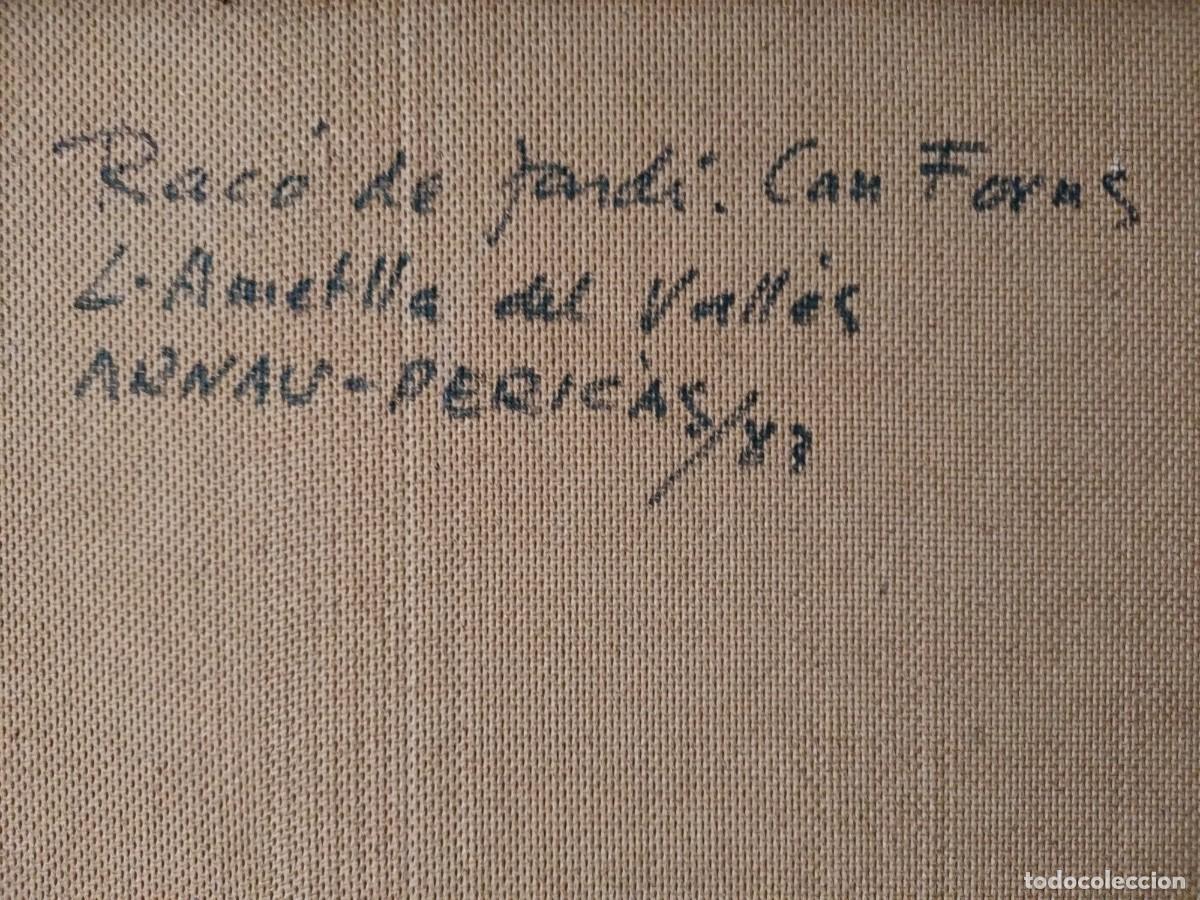 Racó de jardí. Can Forns
L'Ametlla del Vallès
ARNAU-PERICÀS/83
todocoleccion